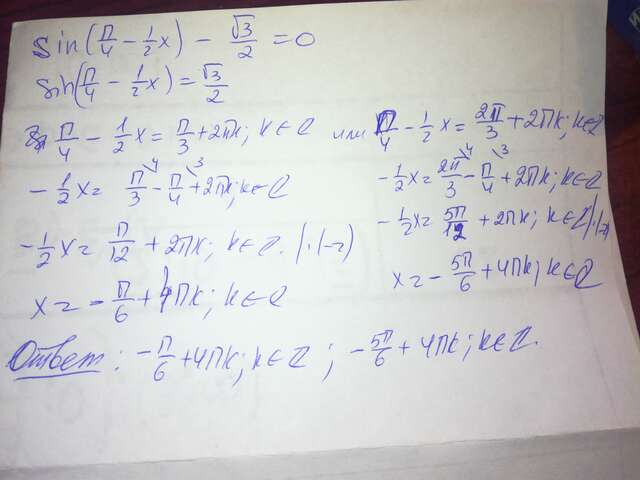 sin(π/4 − 1/2 x) − √3/2 = 0
sin(π/4 − 1/2 x) = √3/2
π/4 − 1/2 x = π/3 + 2πk; k ∈ Z или π/4 − 1/2 x = 2π/3 + 2πk; k ∈ Z
− 1/2 x = π/3 \4 − π/4 \3 + 2πk; k ∈ Z − 1/2 x = 2π/3 \4 − π/4 \3 + 2πk; k ∈ Z
− 1/2 x = π/12 + 2πk; k ∈ Z. |·(−2) − 1/2 x = 5π/12 + 2πk; k ∈ Z |·(−2)
x = − π/6 + 4πk; k ∈ Z x = − 5π/6 + 4πk; k ∈ Z
Ответ: − π/6 + 4πk; k ∈ Z ; − 5π/6 + 4πk; k ∈ Z.